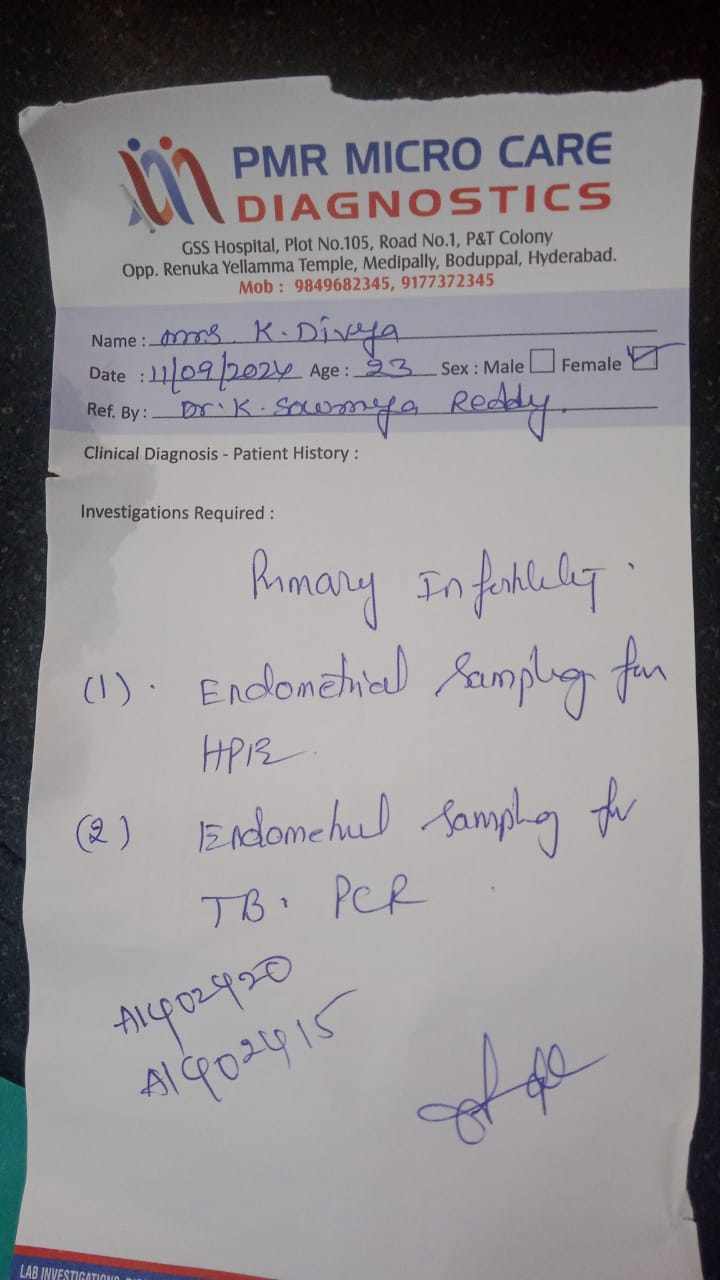 PMR MICRO CARE
DIAGNOSTICS
GSS Hospital, Plot No.105, Road No.1, P&T Colony
Opp. Renuka Yellamma Temple, Medipally, Boduppal, Hyderabad.
Mob : 9849682345, 9177372345
Name : Mrs. K. Divya
Date : 11/09/2024 Age : 23 Sex : Male Female
Ref. By : Dr. K. Sowmya Reddy.
Clinical Diagnosis - Patient History :
Investigations Required :
Primary Infertility.
(1). Endometrial Sampling for
HPE
(2) Endometrial Sampling for
TB. PCR
A1402420
A1402415
LAB INVESTIGATIONS,